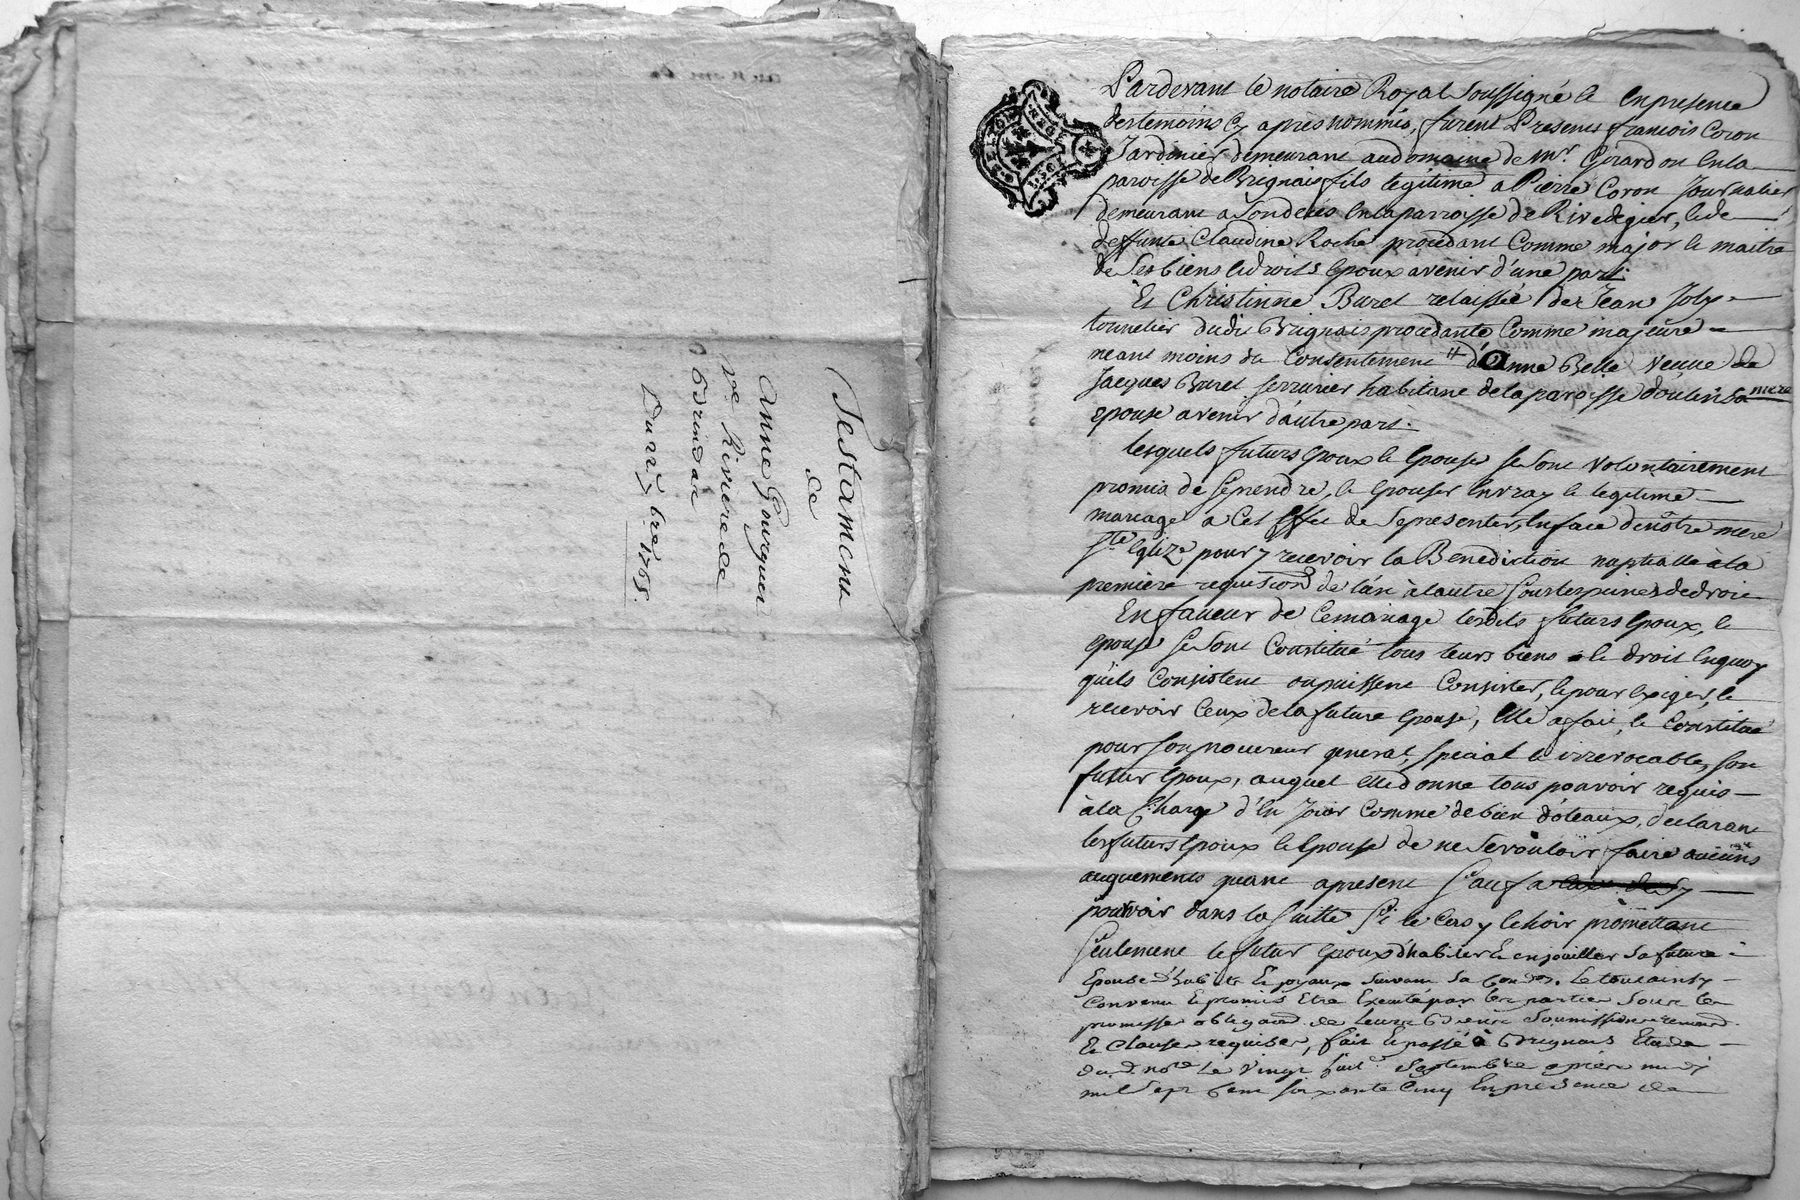 Testament
de
Anne Gourguer
Vve Riviere de
Brindas
Du 27 7bre 1765.
Pardevant le notaire Royal Soussigné & En presence
des temoins Cy apres nommés, furent Presents francois Coron
Jardinier demeurant au domaine de Mr. Girardon En la
paroisse de Brignais fils legitime a Pierre Coron Journalier
demeurant a Sonderes En la parroisse de Rivedegier, & de
deffunte Claudine Roche procedant Comme major & maitre
de Ses biens & droits Epoux avenir d'une part.
Et Christinne Buret relaissée de Jean Joly
tounelier dudit Brignais procedante Comme majeure
neant moins du Consentement d'anne Belle Veuve de
Jacques Buret serrurier habitant de la paroisse d'oulin Sa mere
Epouse avenir d'autre part.
lesquels futurs Epoux & Epouse se sont Volontairement
promis de se prendre, & Epouser En vray & legitime
mariage a Cet Effet de Se presenter, En face de nôtre mere
Ste Eglize pour y recevoir la Benediction nuptialle à la
premiere requisition de l'un à l'autre Sous les peines de droit
En faveur de Ce mariage lesdits futurs Epoux, &
Epouse se sont Constitué tous leurs biens & droit En quoy
qu'ils Consistent ou puissent Consister, & pour Exiger, &
recevoir Ceux de la future Epouse, Elle a fait, & Constitué
pour son procureur general, special & irrevocable, son
futur Epoux, auquel Elle donne tous pouvoir requis
à la Charge d'En Joüir Comme de bien dôteaux, declarant
les futurs Epoux & Epouse de ne Se vouloir faire aucuns
auguements quant apresent Sauf a y
pourvoir dans la suitte Si le Cas y Echoir promettant
Seulement le futur Epoux d'habiller & enjouiller Sa future
Epouse d'habits & joyaux Suivant Sa Condon. le tout ainsy
Convenu & promis Etre Executé par les parties Sous les
promesses obligaons. de leurs Biens Soumissions renonc.
Et Clauses requises, fait & passé à Brignais Etude
dud. nore le Vingt huit Septembre après midy
mil Sept Cent soixante Cinq En presence de